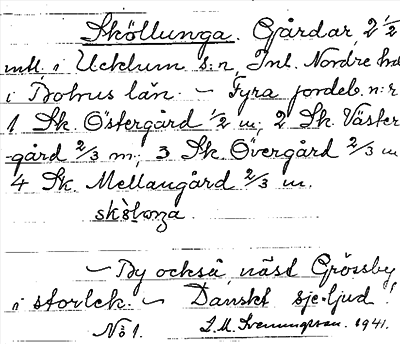 Sköllunga. Gårdar, 2 1/2
mtl. i Ucklum s:n, Inl. Nordre hd
i Bohus län. — Fyra jordeb. n:r
1 Sk. Östergård 1/2 m; 2 Sk. Väster
-gård 2/3 m; 3 Sk. Övergård 2/3 m
4 Sk. Mellangård 2/3 m.
— By också, näst Grössby
i storlek. — Danskt sje-ljud!
No 1. S. M. Svenungsson. 1941.